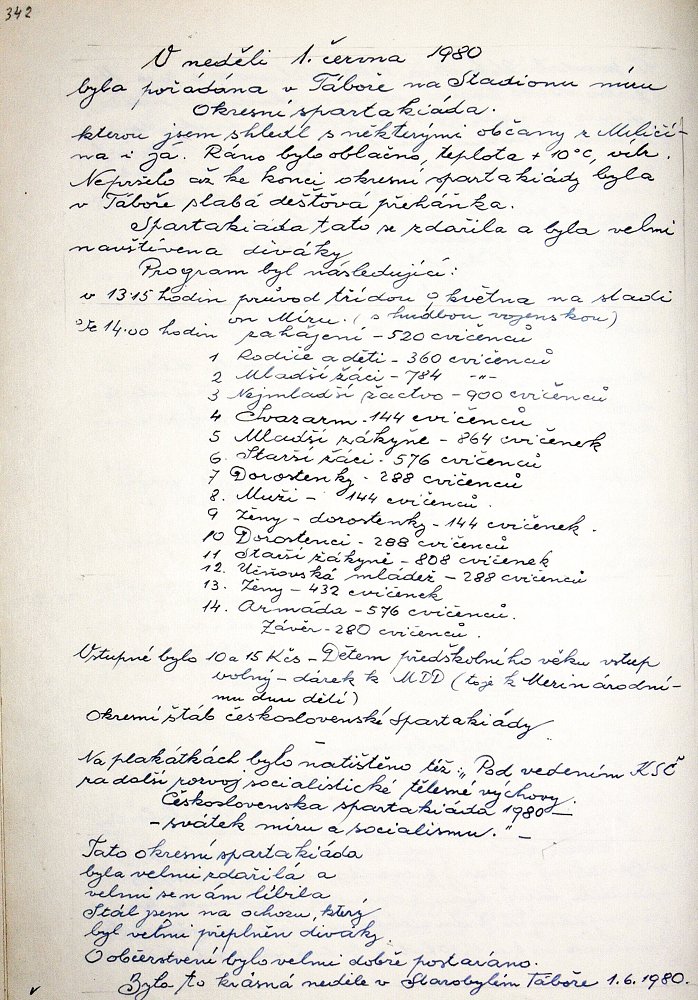 342
V neděli 1. června 1980
byla pořádána v Táboře na Stadionu míru
Okresní spartakiáda.
kterou jsem shledl s některými občany z Miličí-
na i já. Ráno bylo oblačno, teplota + 10°C, vítr.
Nepršelo až ke konci okresní spartakiády byla
v Táboře slabá dešťová přeháňka.
Spartakiáda tato se zdařila a byla velmi
navštívena diváky
Program byl následující:
v 13.15 hodin průvod třídou 9 května na stadi
on Míru. (s hudbou vojenskou)
Ve 14.00 hodin zahájení - 520 cvičenců
1 Rodiče a děti - 360 cvičenců
2 Mladší žáci - 784 -"-
3 Nejmladší žactvo - 900 cvičenců
4 Svazarm - 144 cvičenců
5 Mladší žákyně - 864 cvičenek
6. Starší žáci - 576 cvičenců
7 Dorostenky - 288 cvičenců
8. Muži - 144 cvičenců.
9 Ženy - dorostenky - 144 cvičenek.
10 Dorostenci - 288 cvičenců
11 Starší žákyně - 808 cvičenek
12. Učňovská mládež - 288 cvičenců
13. Ženy - 432 cvičenek
14. Armáda - 576 cvičenců.
Závěr - 280 cvičenců.
Vstupné bylo 10 a 15 Kčs - Dětem předškolního věku vstup
volný - dárek k MDD (to je k Mezinárodní-
mu dnu dětí)
Okresní štáb československé spartakiády
Na plakátkách bylo natištěno též: „Pod vedením KSČ
za další rozvoj socialistické tělesné výchovy.
Československa spartakiáda 1980 -
- svátek míru a socialismu." -
Tato okresní spartakiáda
byla velmi zdařilá a
velmi se nám líbila
Stál jsem na ochozu, který
byl velmi přeplněn diváky.
O občerstvení bylo velmi dobře postaráno.
Byla to krásná neděle v Starobylém Táboře 1.6.1980.